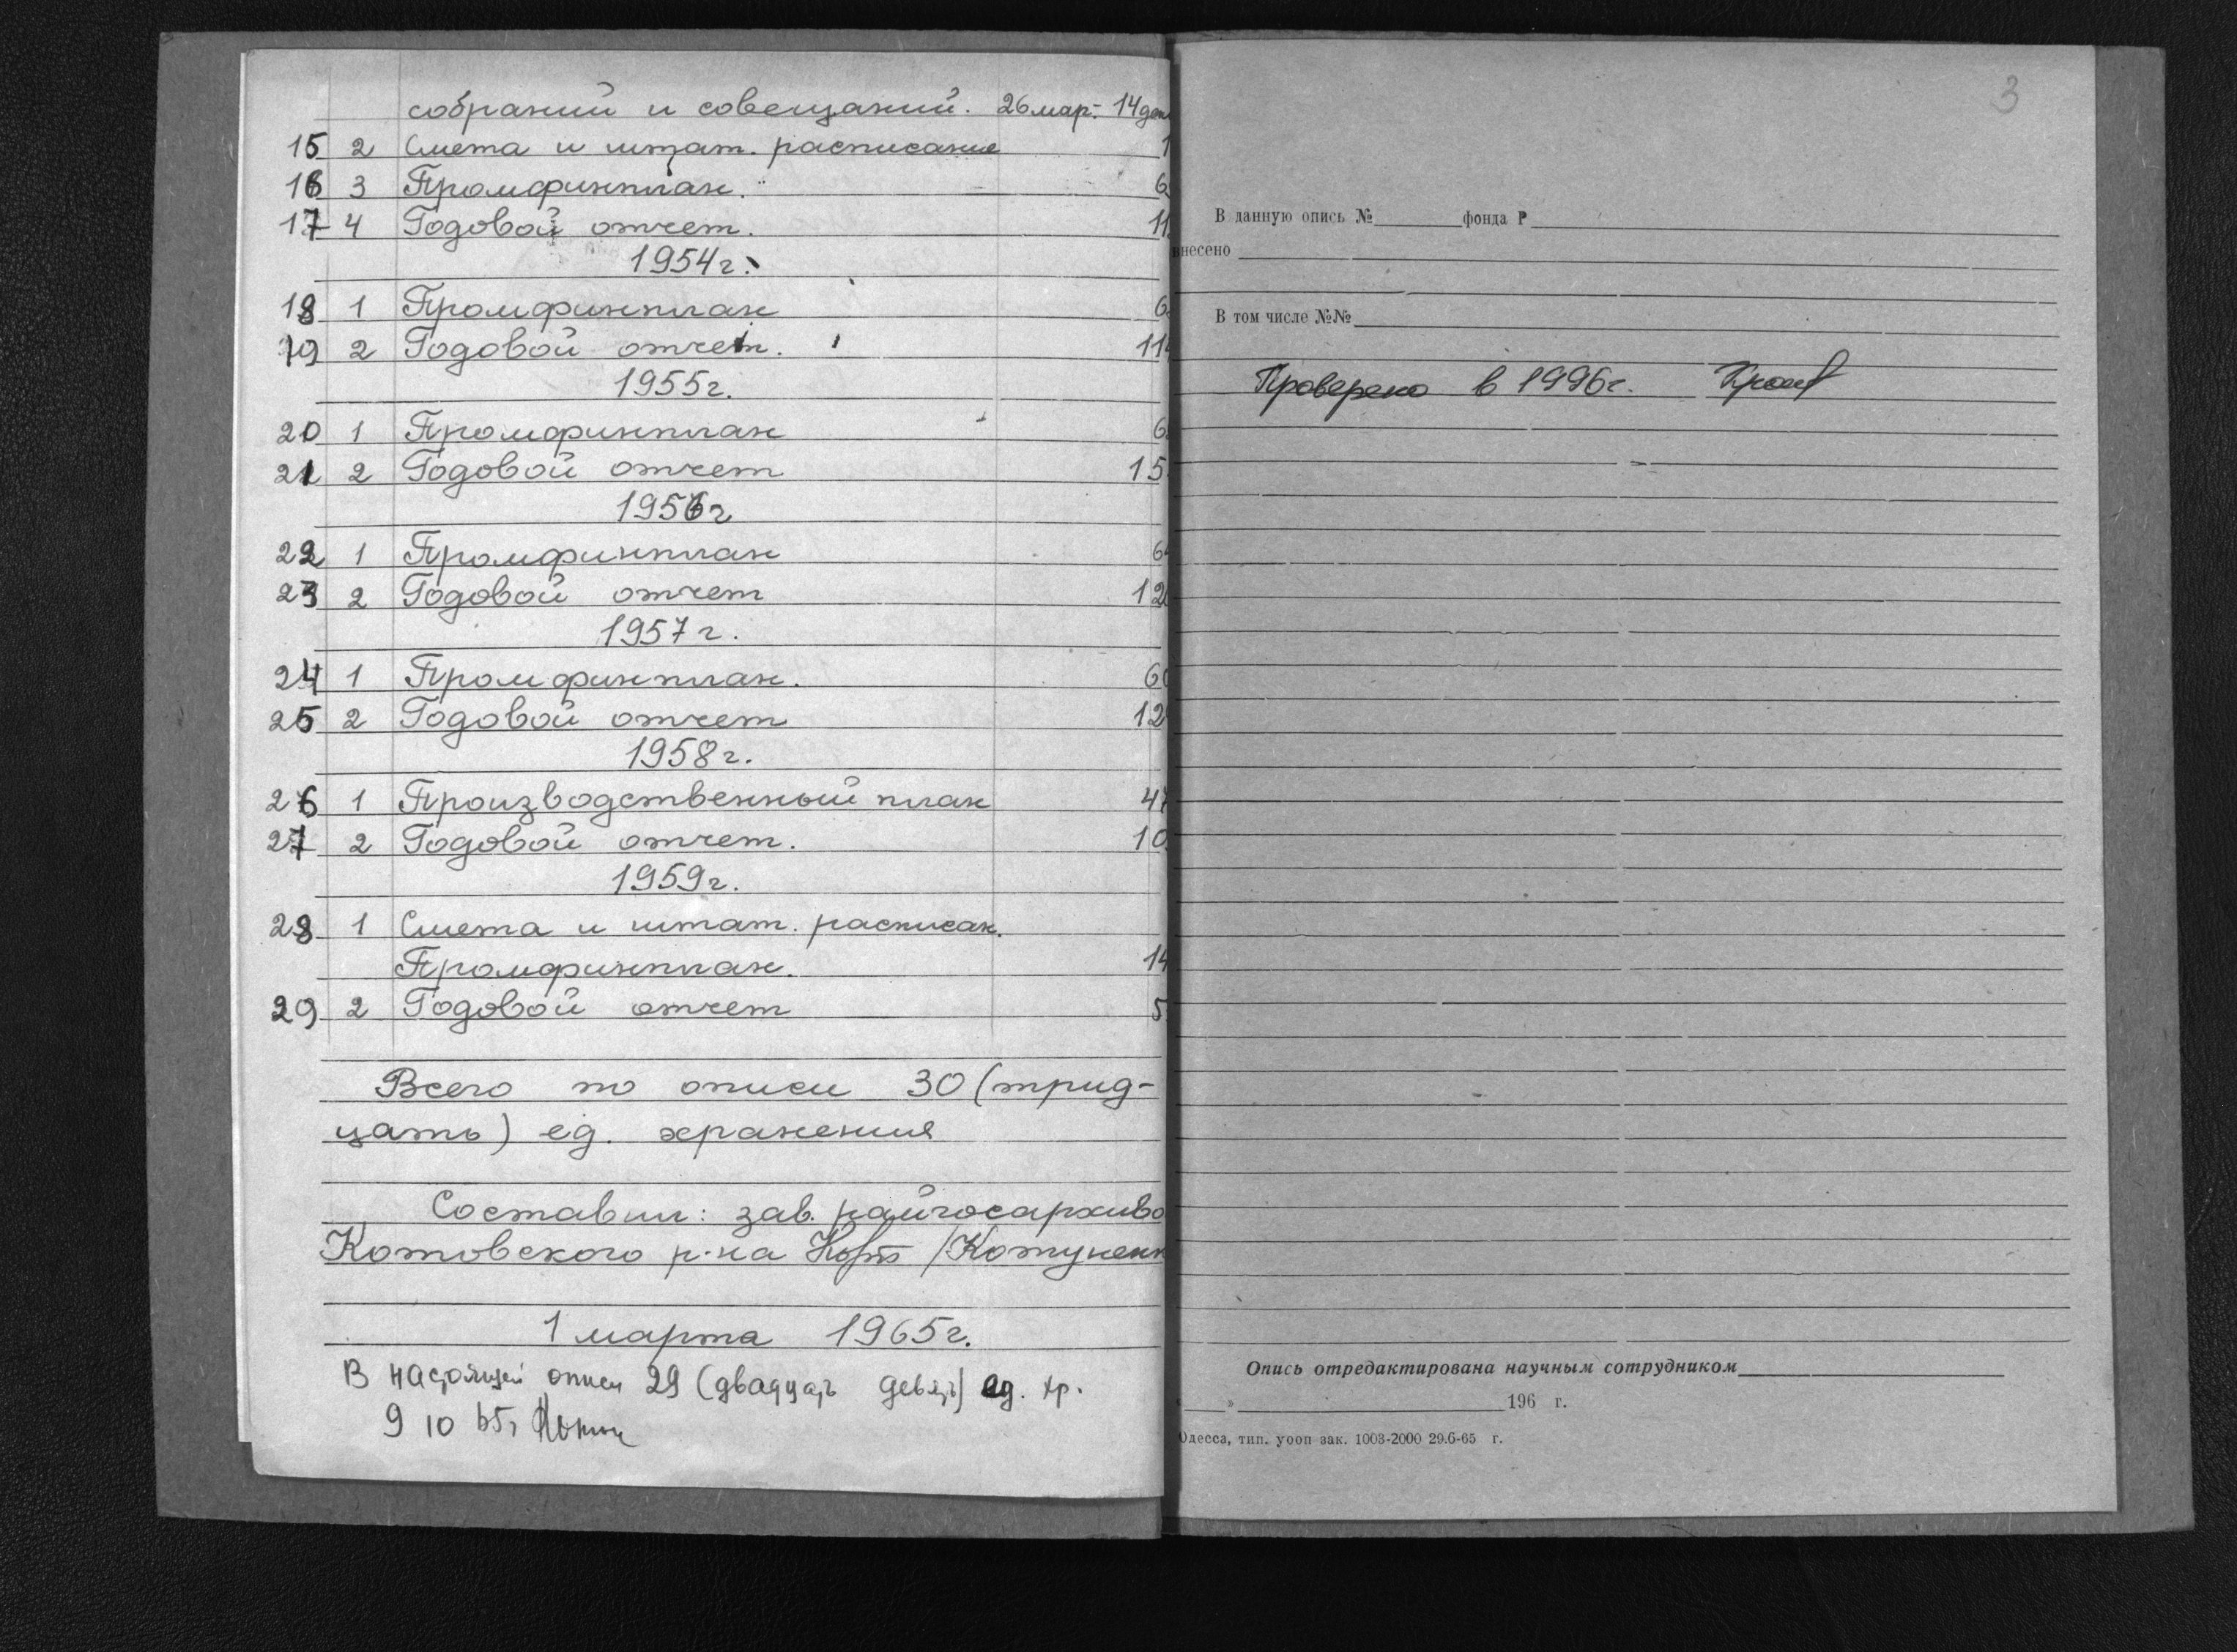 собраний и совещаний. 26 мар.- 14 дек
15 2 Смета и штат. расписание 1
16 3 Промфинплан. 6
17 4 Годовой отчет. 11
1954г.
18 1 Промфинплан 6
19 2 Годовой отчет. 11
1955г.
20 1 Промфинплан 6
21 2 Годовой отчет 15
1956г
22 1 Промфинплан 6
23 2 Годовой отчет 12
1957г.
24 1 Промфинплан. 60
25 2 Годовой отчет 12
1958г.
26 1 Производственный план 47
27 2 Годовой отчет. 10
1959г.
28 1 Смета и штат. расписан.
Промфинплан. 14
29 2 Годовой отчет 5
Всего по описи 30 (трид-
цать) ед. хранения
Составил: зав. райгосархиво
Котовского р-на /Котуненк
1 марта 1965г.
В настоящей описи 29 (двадцать девять) ед. хр.
9 10 65г
3
В данную опись № фонда Р
внесено
В том числе №№
Проверено в 1996г.
Опись отредактирована научным сотрудником
« » 196 г.
Одесса, тип. уооп зак. 1003-2000 29.6-65 г.